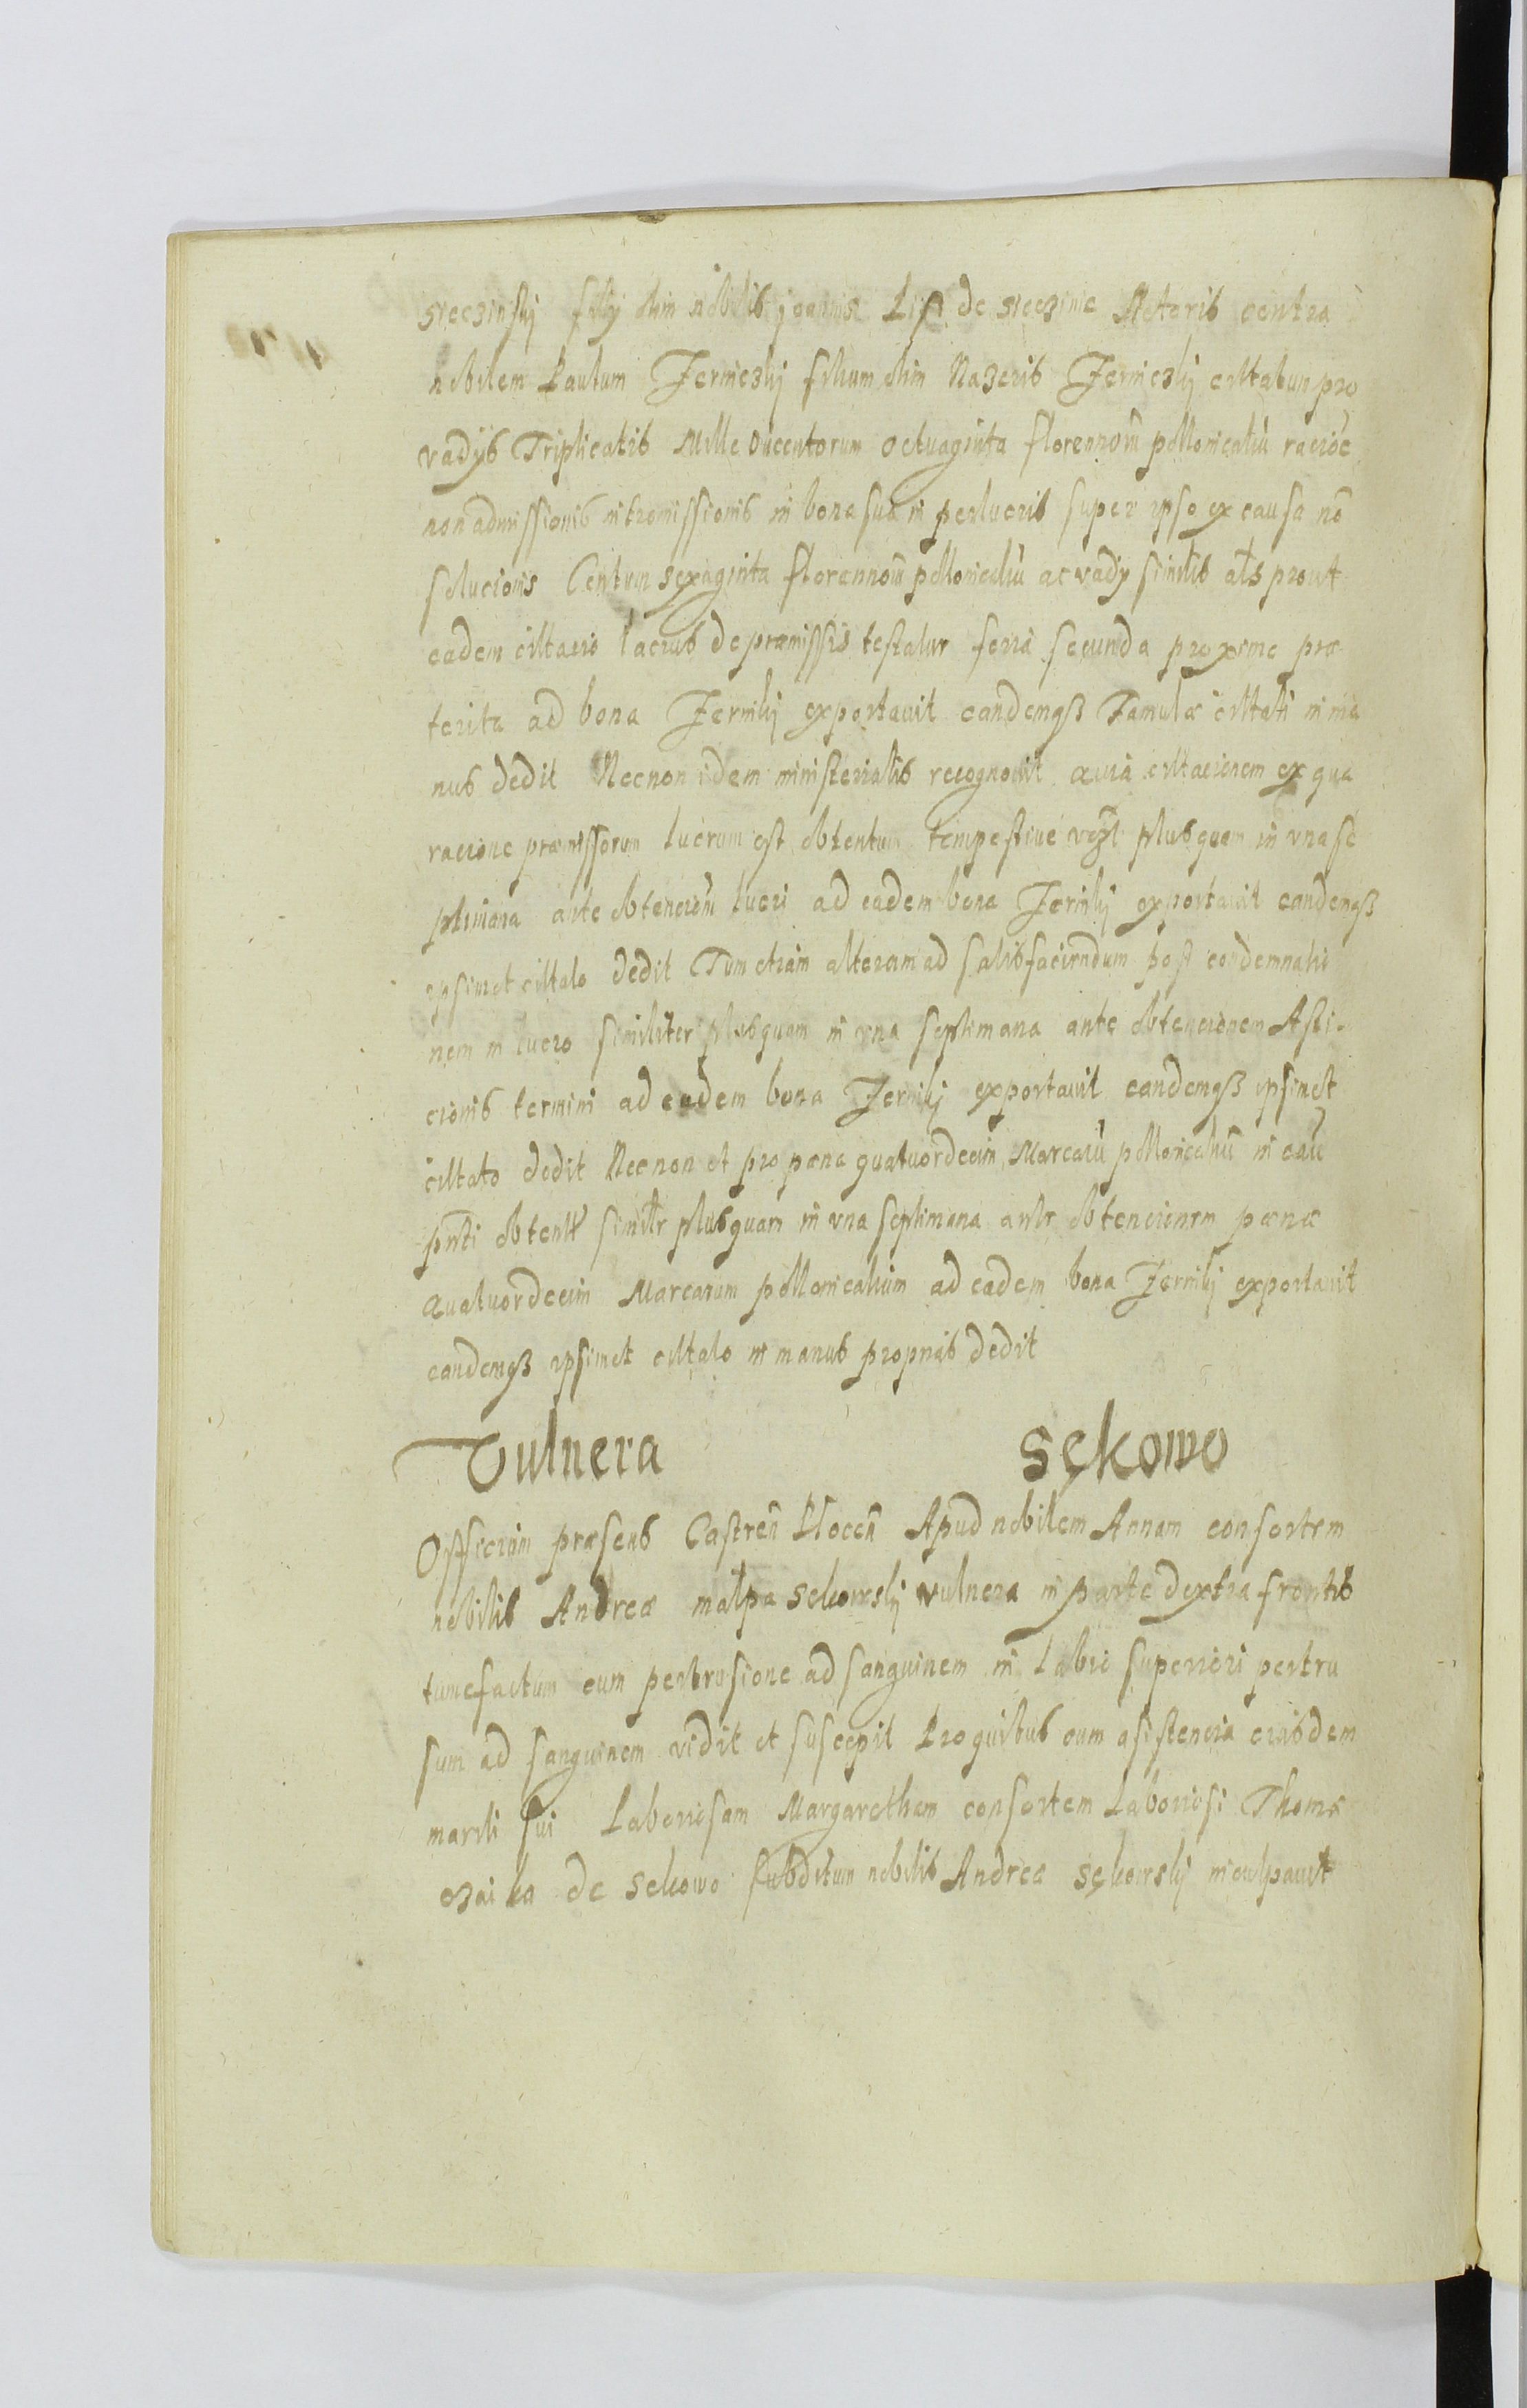 Sieczinskj filij olim nobilis joannis Lip de Sieczinie Actoris contra
nobilem Paulum Zerniczkj filium olim Nazerib Zerniczkj cittatum pro
vadijs Triplicatis Mille Ducentorum Octuaginta florennorū pollonicaliū racioē
non admissionis intromissionis in bona sua in perlucris super ipso ex causa nō
solucionis Centum sexaginta florennorū pollonicaliū ac vadÿ similis als prout
eadem cittacio lacius de præmissis testatur feria secunda proxime præ
terita ad bona Zernikj exportavit eandemqß Famulæ cittati in ma
nus dedit Necnon idem ministerialis recognovit quia cittacionem ex qua
racione præmissorum lucrum est obtentum tempestive vczt plusquam in vna se
ptimana ante obtencionē lucri ad eadem bona Zernikj exportavit eandemqß
ipsimet cittato dedit Tum etiam alteram ad satisfaciendum post condemnatio
nem in lucro similiter plusquam in vna septimana ante obtencionem Asti
cionis termini ad eadem bona Zernikj exportavit eandemqß ipsimet
cittato dedit Necnon et pro pæna quatuordecim Marcarū pollonicaliū in cau
pnti obtent similr plusquam in vna septimana ante obtencionem pænæ
Quatuordecim Marcarum pollonicalium ad eadem bona Zernikj exportavit
eandemqß ipsimet cittato in manus proprias dedit
Vulnera Sękowo
Officium præsens Castren Plocen Apud nobilem Annam consortem
nobilis Andreæ małpa Sekowskj vulnera in parte dextra frontis
tumefactum cum pertrusione ad sanguinem in Labio superiori pertru
sum ad sanguinem vidit et suscepit Pro quibus cum asistencia eiusdem
mariti sui Laboriosam Margaretham consortem Laboriosi Thomæ
czaika de Sekowo subditum nobilis Andreæ Sękowskj inculpavit